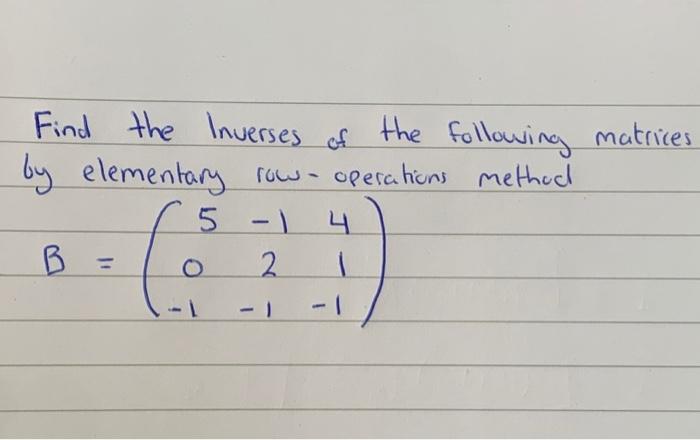 Find the Inverses of the following matrices
by elementary row-operations method
5 -1 4
B = 0 2 1
-1 -1 -1